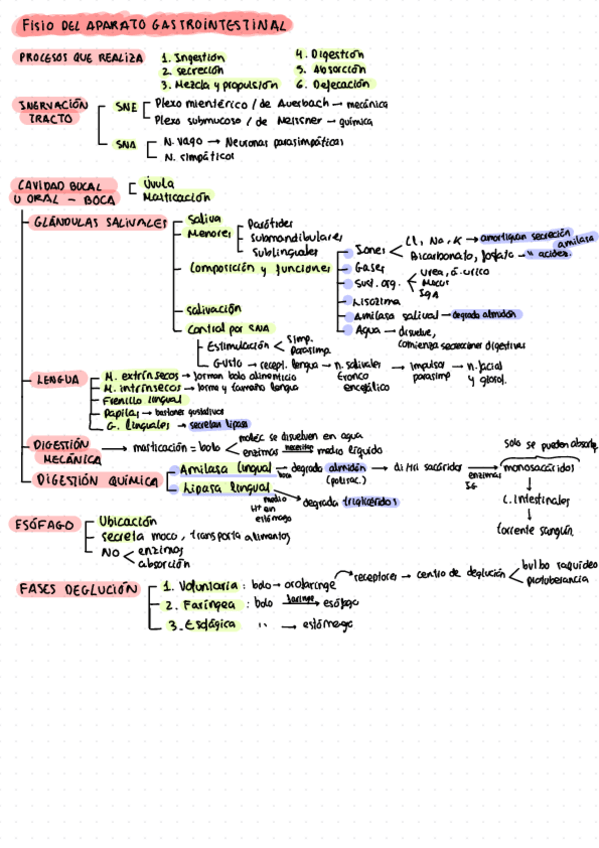 FISIO DEL APARATO GASTROINTESTINAL
PROCESOS QUE REALIZA
1. Ingestión
2. secreción
3. Mezcla y propulsión
4. Digestión
5. Absorción
6. Defecación
INERVACIÓN TRACTO
SNE
Plexo mientérico / de Auerbach → mecánica
Plexo submucoso / de Meissner → química
SNA
N. vago → Neuronas parasimpáticas
N. simpáticos
CAVIDAD BUCAL
U ORAL - BOCA
Úvula
Masticación
GLÁNDULAS SALIVALES
Saliva
Menores
Parótidas
Submandibulares
Sublinguales
Composición y funciones
Iones < Cl, Na, K → amortiguan secreción amilasa
Bicarbonato, fosfato → " acidez.
Gases
Sust. org. < urea, á. úrico
Mucus
IgA
Lisozima
Amilasa salival → degrada almidón
Agua → disuelve,
comienza secreciones digestivas
salivación
Control por SNA
Estimulación < Simp.
Parasimp.
Gusto → recept. lengua → n. salivales → impulsos → n. facial
tronco encefálico
parasimp
y glosof.
LENGUA
M. extrínsecos → forman bolo alimenticio
M. intrínsecos → forma y tamaño lengua
Frenillo lingual
Papilas → botones gustativos
G. linguales → secretan lipasa
DIGESTIÓN MECÁNICA
→ masticación = bolo < moléc se disuelven en agua
enzimas necesitan medio líquido
solo se pueden absorber
DIGESTIÓN QUÍMICA
Amilasa lingual → degrada almidón → di/tri sacáridos → monosacáridos
boca
(polisac.)
enzimas
IG
Lipasa lingual → degrada triglicéridos
medio
H+ en
estómago
↓
C. Intestinales
↓
torrente sanguín.
ESÓFAGO
Ubicación
Secreta moco, transporta alimentos
NO < enzimas
absorción
FASES DEGLUCIÓN
1. Voluntaria : bolo → orofaringe
receptores → centro de deglución < bulbo raquídeo
protuberancia
2. Faríngea : bolo faringe → esófago
3. Esofágica " → estómago